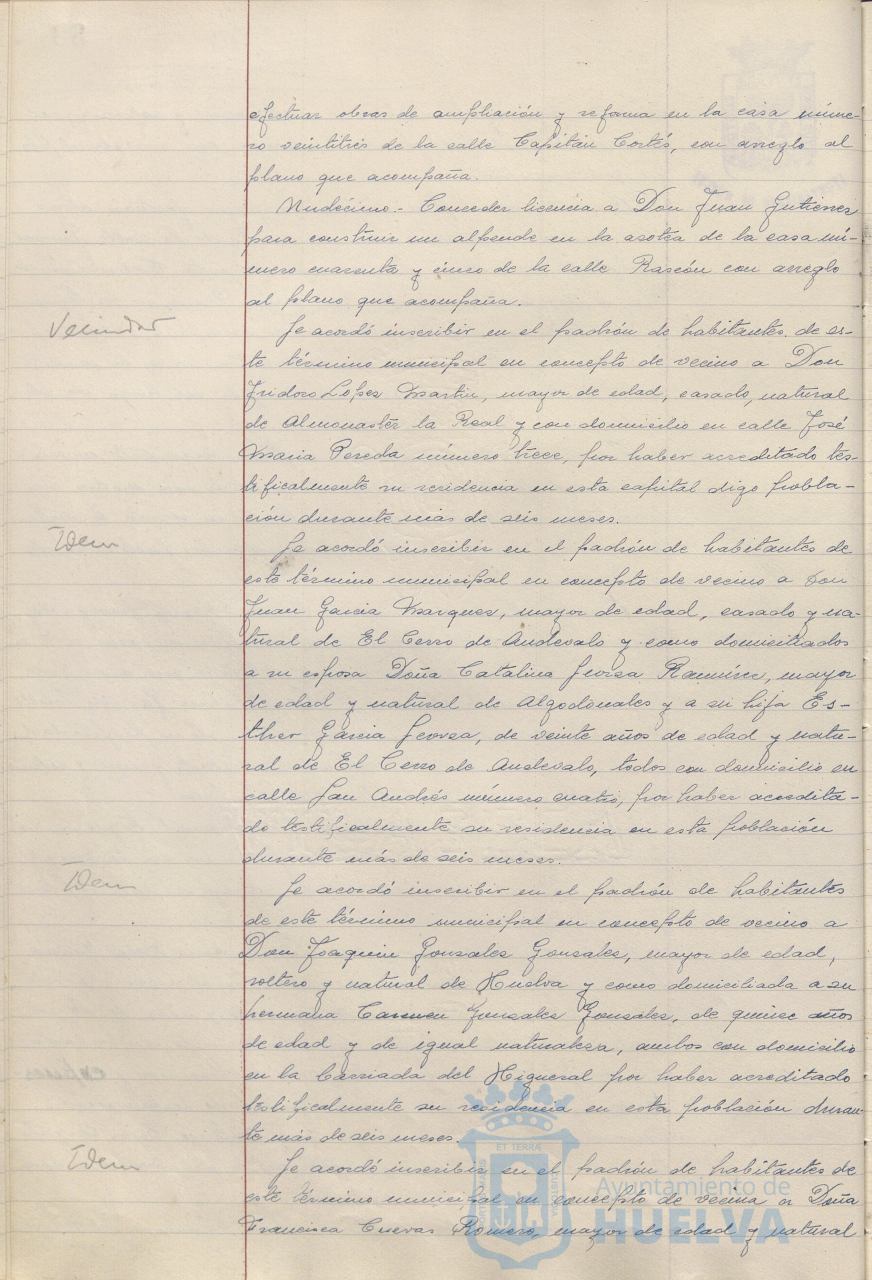 efectuar obras de ampliación y reforma en la casa núme-
ro veintitrés de la calle Capitán Cortés, con arreglo al
plano que acompaña.
Undécimo.- Conceder licencia a Don Juan Gutierrez
para construir un alpende en la azotea de la casa nú-
mero cuarenta y cinco de la calle Rascón con arreglo
al plano que acompaña.
Vecindad
Se acordó inscribir en el padrón de habitantes de es-
te término municipal en concepto de vecino a Don
Isidoro Lopez Martin, mayor de edad, casado, natural
de Almonaster la Real y con domicilio en calle José
Maria Pereda número trece, por haber acreditado tes-
tificalmente su residencia en esta capital digo pobla-
ción durante más de seis meses.
Idem
Se acordó inscribir en el padrón de habitantes de
este término municipal en concepto de vecino a Don
Juan Garcia Marquez, mayor de edad, casado y na-
tural de El Cerro de Andevalo y como domiciliados
a su esposa Doña Catalina Ramírez, mayor
de edad y natural de Algodonales y a su hija Es-
ther Garcia de veinte años de edad y natu-
ral de El Cerro de Andevalo, todos con domicilio en
calle San Andrés número cuatro, por haber acredita-
do testificalmente su residencia en esta población
durante más de seis meses.
Idem
Se acordó inscribir en el padrón de habitantes
de este término municipal en concepto de vecino a
Don Joaquin Gonzalez Gonzalez, mayor de edad,
soltero y natural de Huelva y como domiciliada a su
hermana Carmen Gonzalez Gonzalez, de quince años
de edad y de igual naturaleza, ambos con domicilio
en la barriada del Higueral por haber acreditado
testificalmente su residencia en esta población duran-
te más de seis meses.
Idem
Se acordó inscribir en el padrón de habitantes de
este término municipal en concepto de vecina a Doña
Francisca Cuevas Romero, mayor de edad y natural
ET TERRAE
Ayuntamiento de
HUELVA